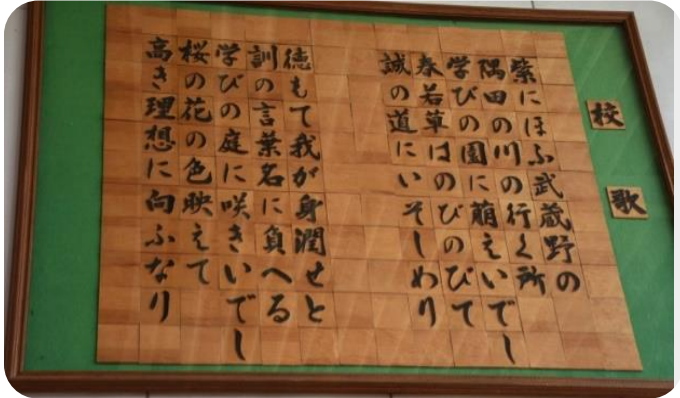 校歌
紫にほふ武蔵野の
隅田の川の行く所
学びの園に萠えいでし
春若草はのびのびて
誠の道にいそしめり
徳もて我が身潤せと
訓の言葉名に負へる
学びの庭に咲きいでし
桜の花の色映えて
高き理想に向ふなり